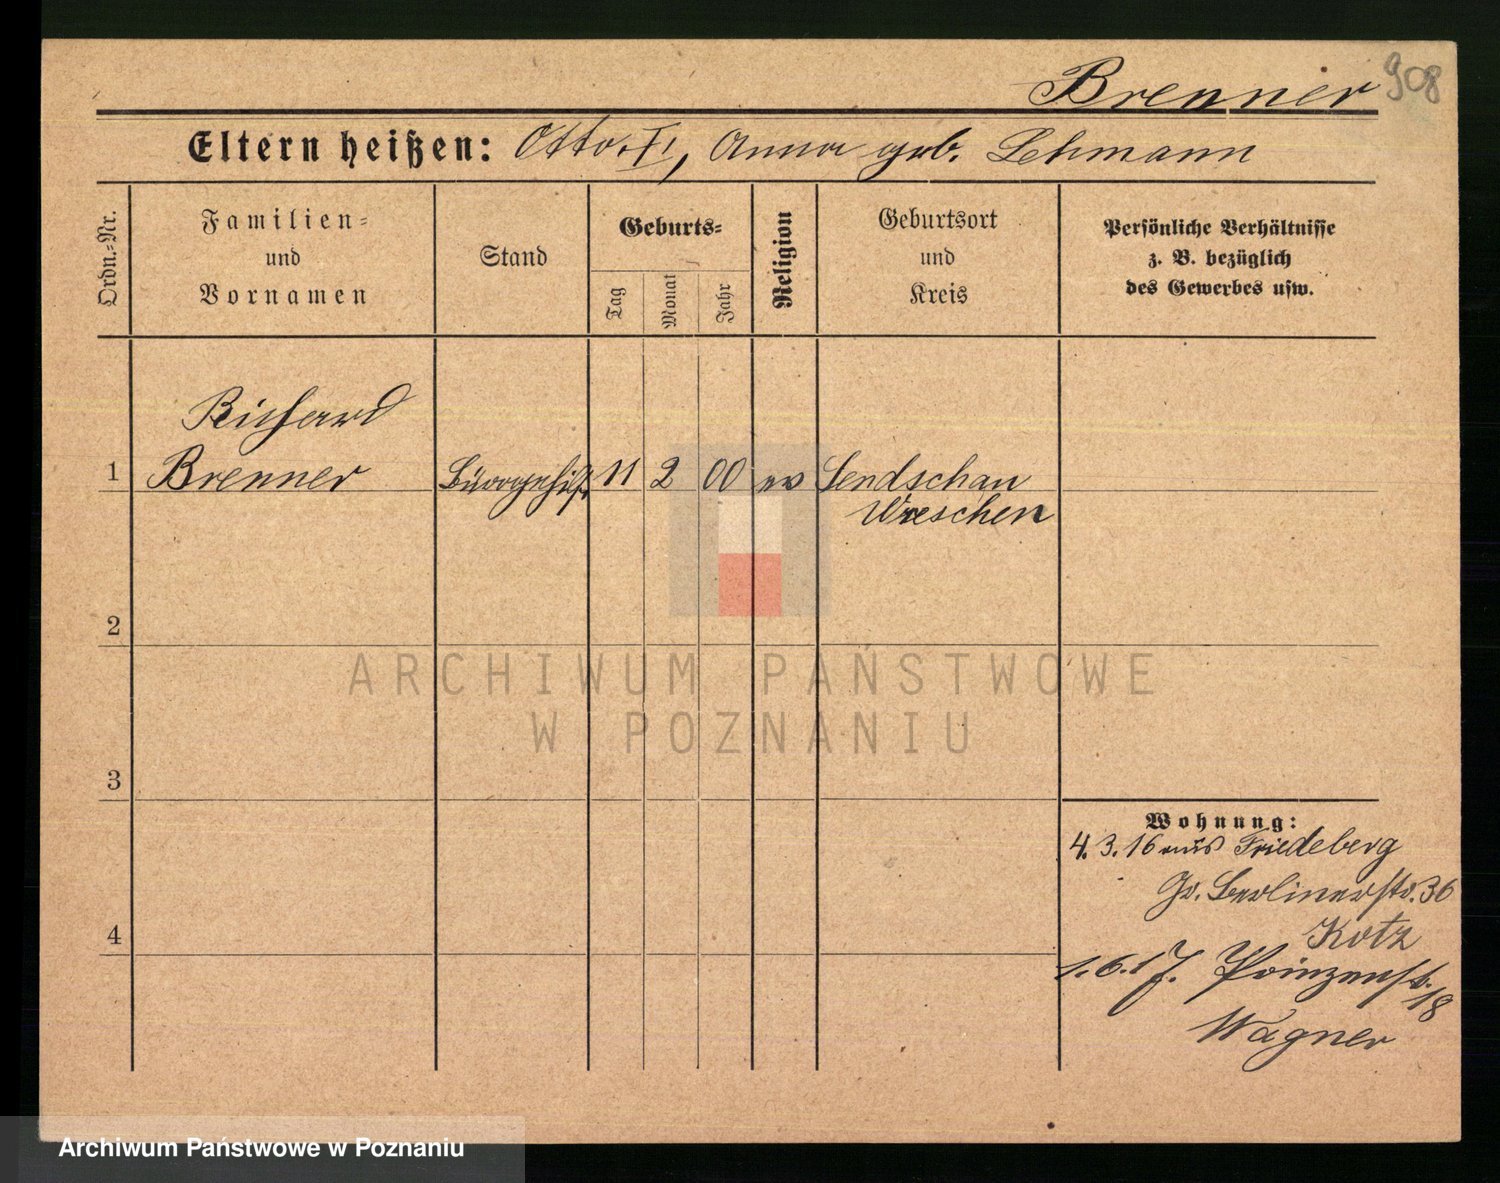 Brenner 908
Eltern heißen: Otto I, Anna geb. Lehmann
Ordn.=Nr.
Familien=
und
Vornamen
Stand
Geburts=
Tag
Monat
Jahr
Religion
Geburtsort
und
Kreis
Persönliche Verhältnisse
z. B. bezüglich
des Gewerbes usw.
Richard
1 Brenner Bürogehilf. 11 2 00 ev Sendschau
Wreschen
2
3
4
Wohnung:
4. 3. 16 aus Friedeberg
Gr. Berlinerstr. 36
Kotz
1. 6. 17. Prinzenst. 18
Wagner
ARCHIWUM PAŃSTWOWE
W POZNANIU
Archiwum Państwowe w Poznaniu